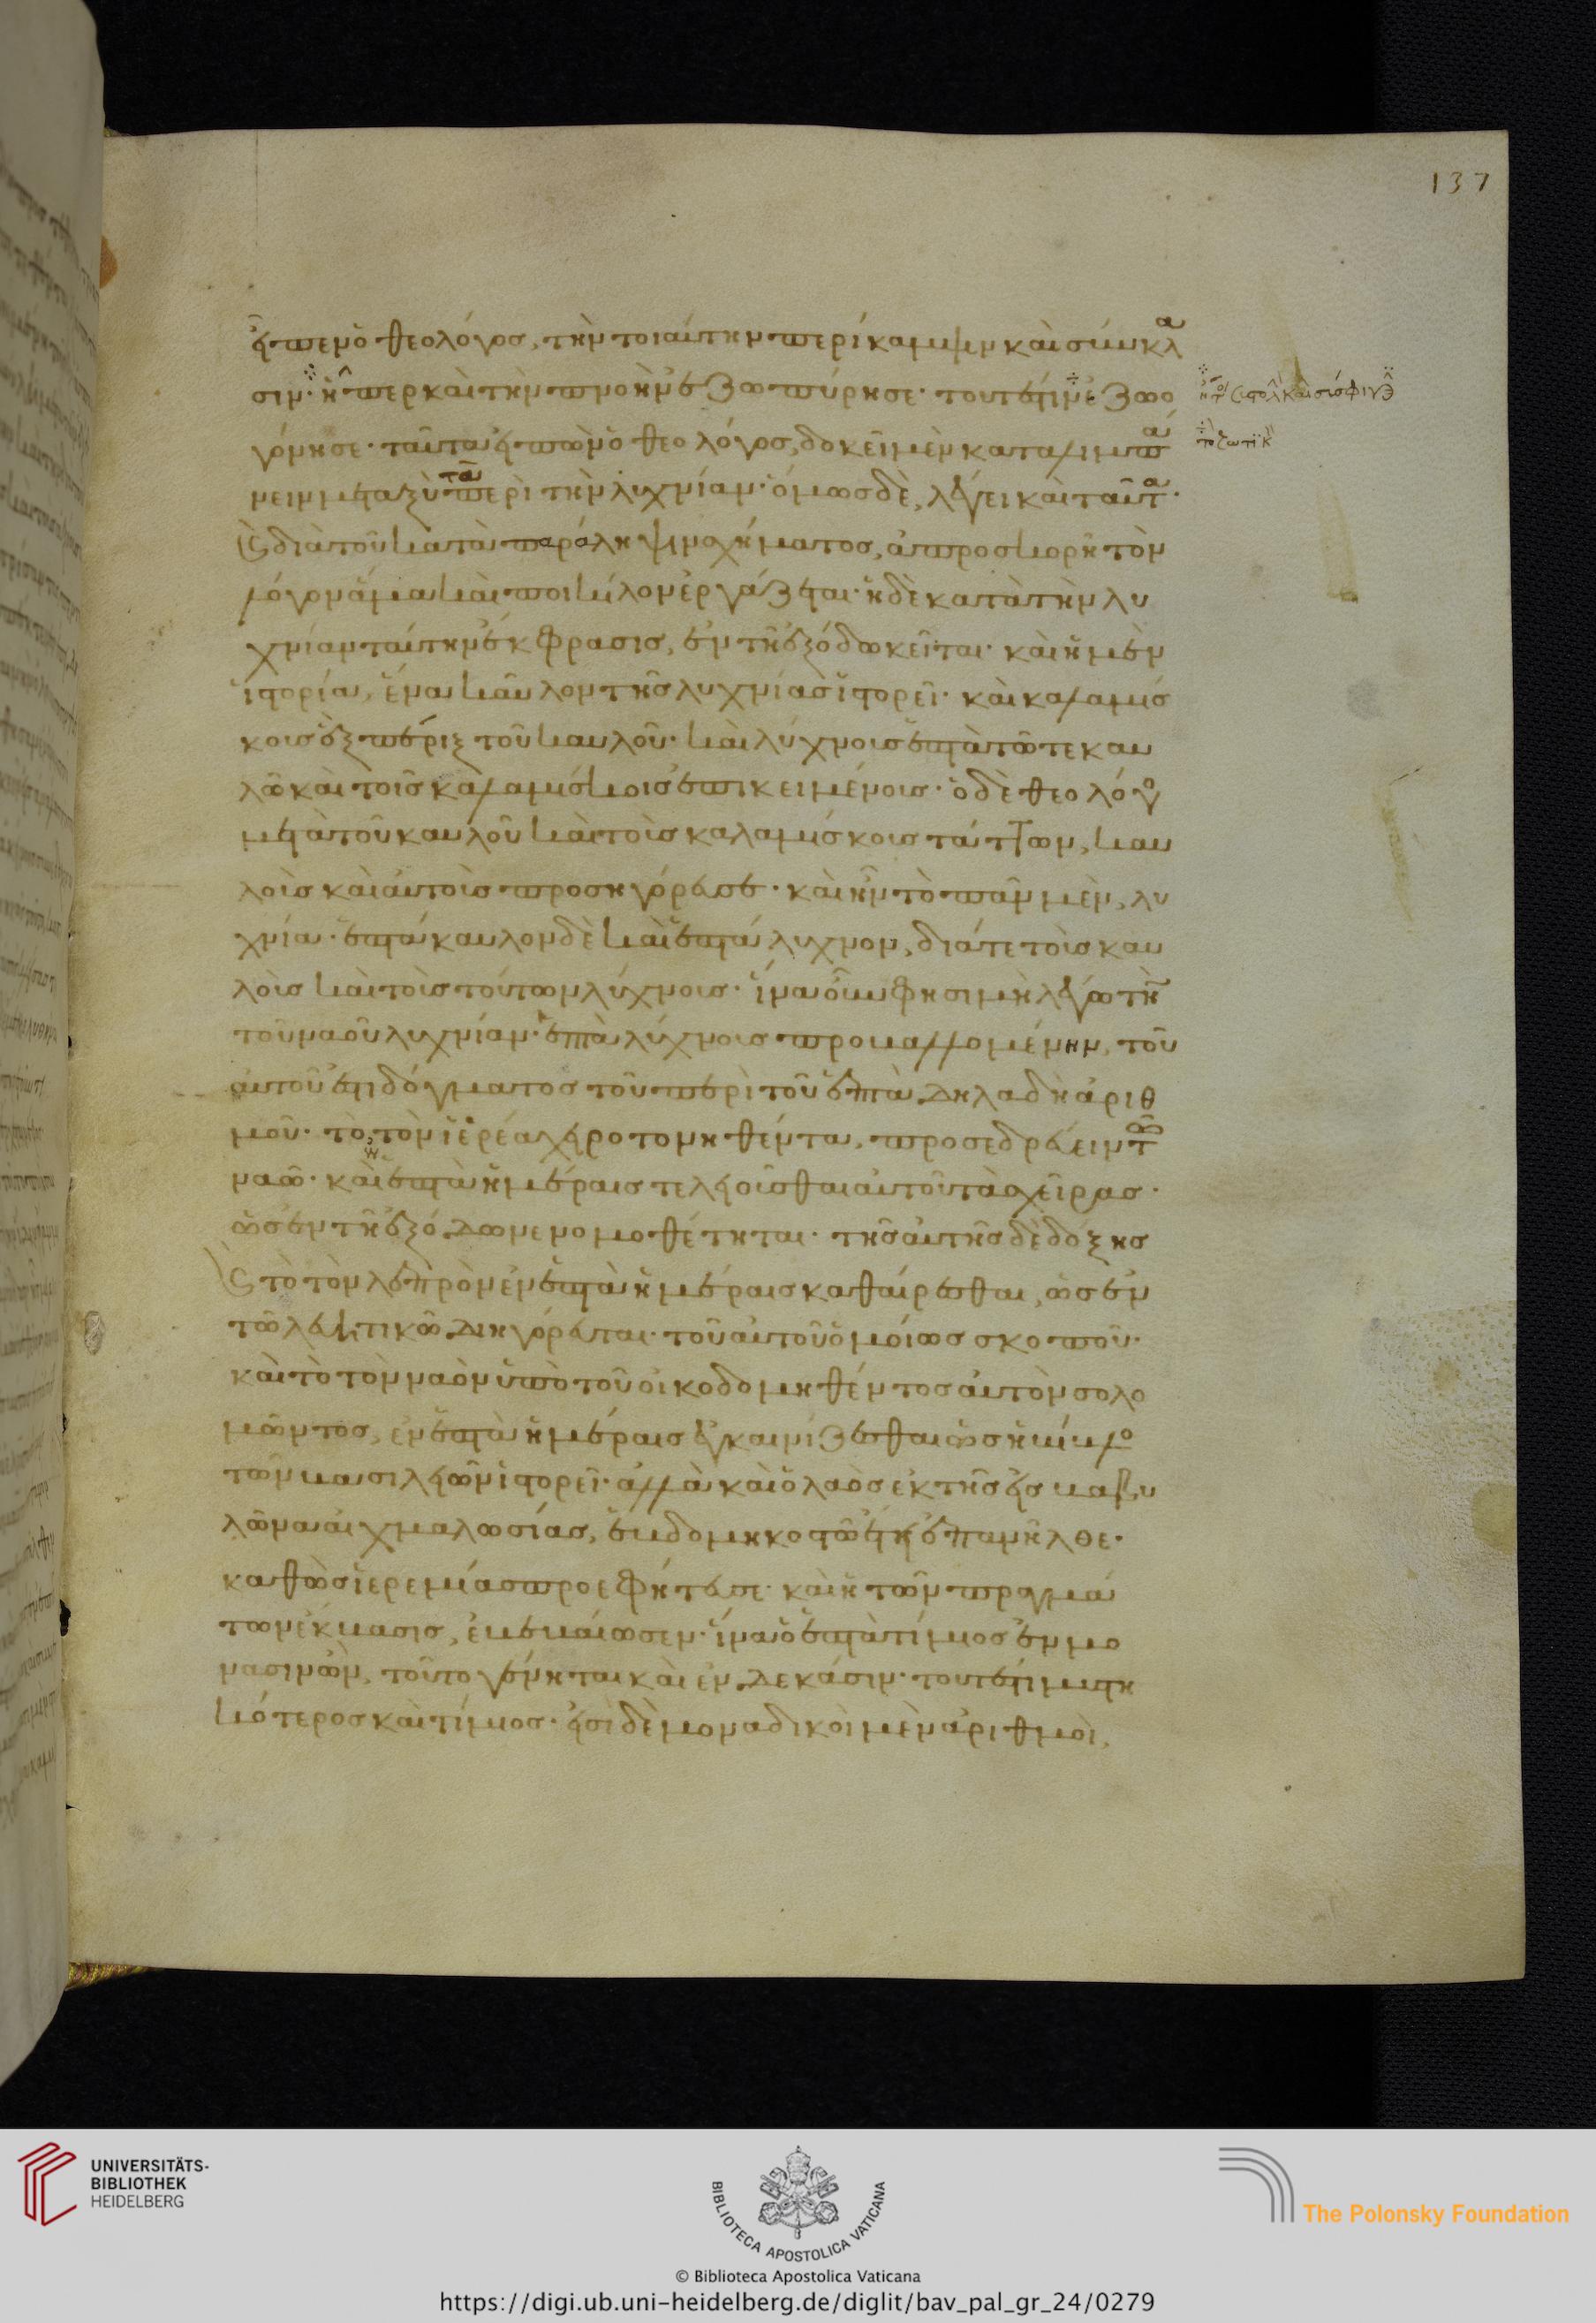 137
εἶπεν ὁ θεολόγος, τὴν τοιαύτην περίκαμψιν καὶ σύνκλα
σιν· ἥπερ καὶ τὴν πνοὴν ἐζωπύρησε· τουτέστιν ἐζωο
γόνησε· ταῦτα εἰπὼν ὁ θεολόγος, δοκεῖ μὲν καταλιμπά
νειν μεταξὺ τὰ περὶ τὴν λυχνίαν· ὅμως δὲ, λέγει καὶ ταῦτα·
διὰ τοῦ κατὰ παράληψιν σχήματος, ἀπροσκορῆ τὸν
λόγον ἅμα καὶ ποικίλον ἐργάζεται· ἡ δὲ κατὰ τὴν λυ
χνίαν ταύτην ἔκφρασις, ἐν τῇ ἐξόδω κεῖται· καὶ ἡ μὲν
ἱστορία, ἕνα καυλὸν τῆς λυχνίας ἱστορεῖ· καὶ καλαμίσ
κοις ἓξ πέριξ τοῦ καυλοῦ· καὶ λύχνοις ἑπτὰ τῶ τε καυ
λῶ καὶ τοῖς καλαμίσκοις ἐπικειμένοις· ὁ δὲ θεολόγο
μετὰ τοῦ καυλοῦ καὶ τοὺς καλαμίσκοις τούτων, καυ
λοὺς καὶ αὐτοὺς προσηγόρευσε· καὶ ἦν τὸ πᾶν μὲν, λυ
χνία· ἑπτάκαυλον δὲ καὶ ἑπτάλυχνον, διά τε τοὺς καυ
λοὺς καὶ τοὺς τούτων λύχνοις· ἵνα οὖν φησι μὴ λέγω τὴν
τοῦ ναοῦ λυχνίαν· ἑπτὰ λύχνοις προκαλλομένην, τοῦ
αὐτοῦ ἐστι δόγματος τοῦ περὶ τοῦ ἑπτὰ δηλαδὴ ἀριθ
μοῦ· τὸ τὸν ἱερέα χειροτονηθέντα, προσεδρεύειν τῶ
ναῶ· καὶ ἑπτὰ ἡμέραις τελειοῦσθαι αὐτοῦ τὰς χεῖρας·
ὡς ἐν τῇ ἐξόδω νενομοθέτηται· τῆς αὐτῆς δὲ δόξης
τὸ τὸν λεπρὸν ἐν ἑπτὰ ἡμέραις καθαίρεσθαι, ὡς ἐν
τῶ λευιτικῶ διηγόρευται· τοῦ αὐτοῦ ὁμοίως σκοποῦ·
καὶ τὸ τὸν ναὸν ὑπὸ τοῦ οἰκοδομηθέντος αὐτὸν σολο
μῶντος, ἐν ἑπτὰ ἡμέραις ἐγκαινίζεσθαι ὡς ἡ βίβλο
τῶν βασιλειῶν ἱστορεῖ· ἀλλὰ καὶ ὁ λαὸς ἐκ τῆς εἰς βαβυ
λῶνα αἰχμαλωσίας, ἑβδομηκοστῶ ἔτει ἐπανῆλθε·
καθὼς ἱερεμίας προεφήτευσε· καὶ ἡ τῶν πραγμά
των ἔκβασις, ἐβεβαίωσεν· ἵνα ὁ ἑπτὰ τίμιος ἐν μο
νάσιν ὢν, τοῦτο γένηται καὶ ἐν δεκάσιν· τουτέστι μυστι
κώτερος καὶ τίμιος· εἰσὶ δὲ μοναδικοὶ μὲν ἀριθμοὶ,
UNIVERSITÄTS-
BIBLIOTHEK
HEIDELBERG
BIBLIOTECA APOSTOLICA VATICANA
The Polonsky Foundation
© Biblioteca Apostolica Vaticana
https://digi.ub.uni-heidelberg.de/diglit/bav_pal_gr_24/0279